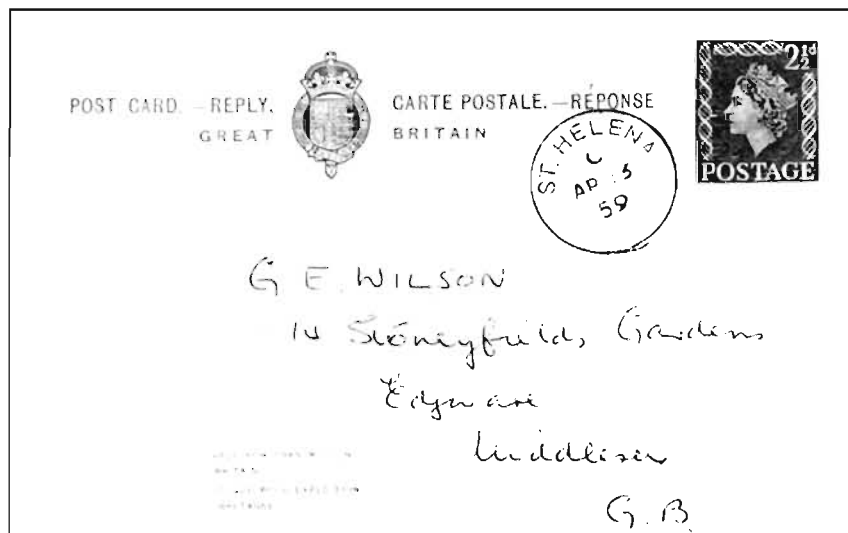 POST CARD. —REPLY.
GREAT
CARTE POSTALE. —RÉPONSE
BRITAIN
2½d
POSTAGE
ST. HELENA
C
AP 5
59
G E. WILSON
14 Stoneyfields Gardens
Edgware
Middlesex
G. B.